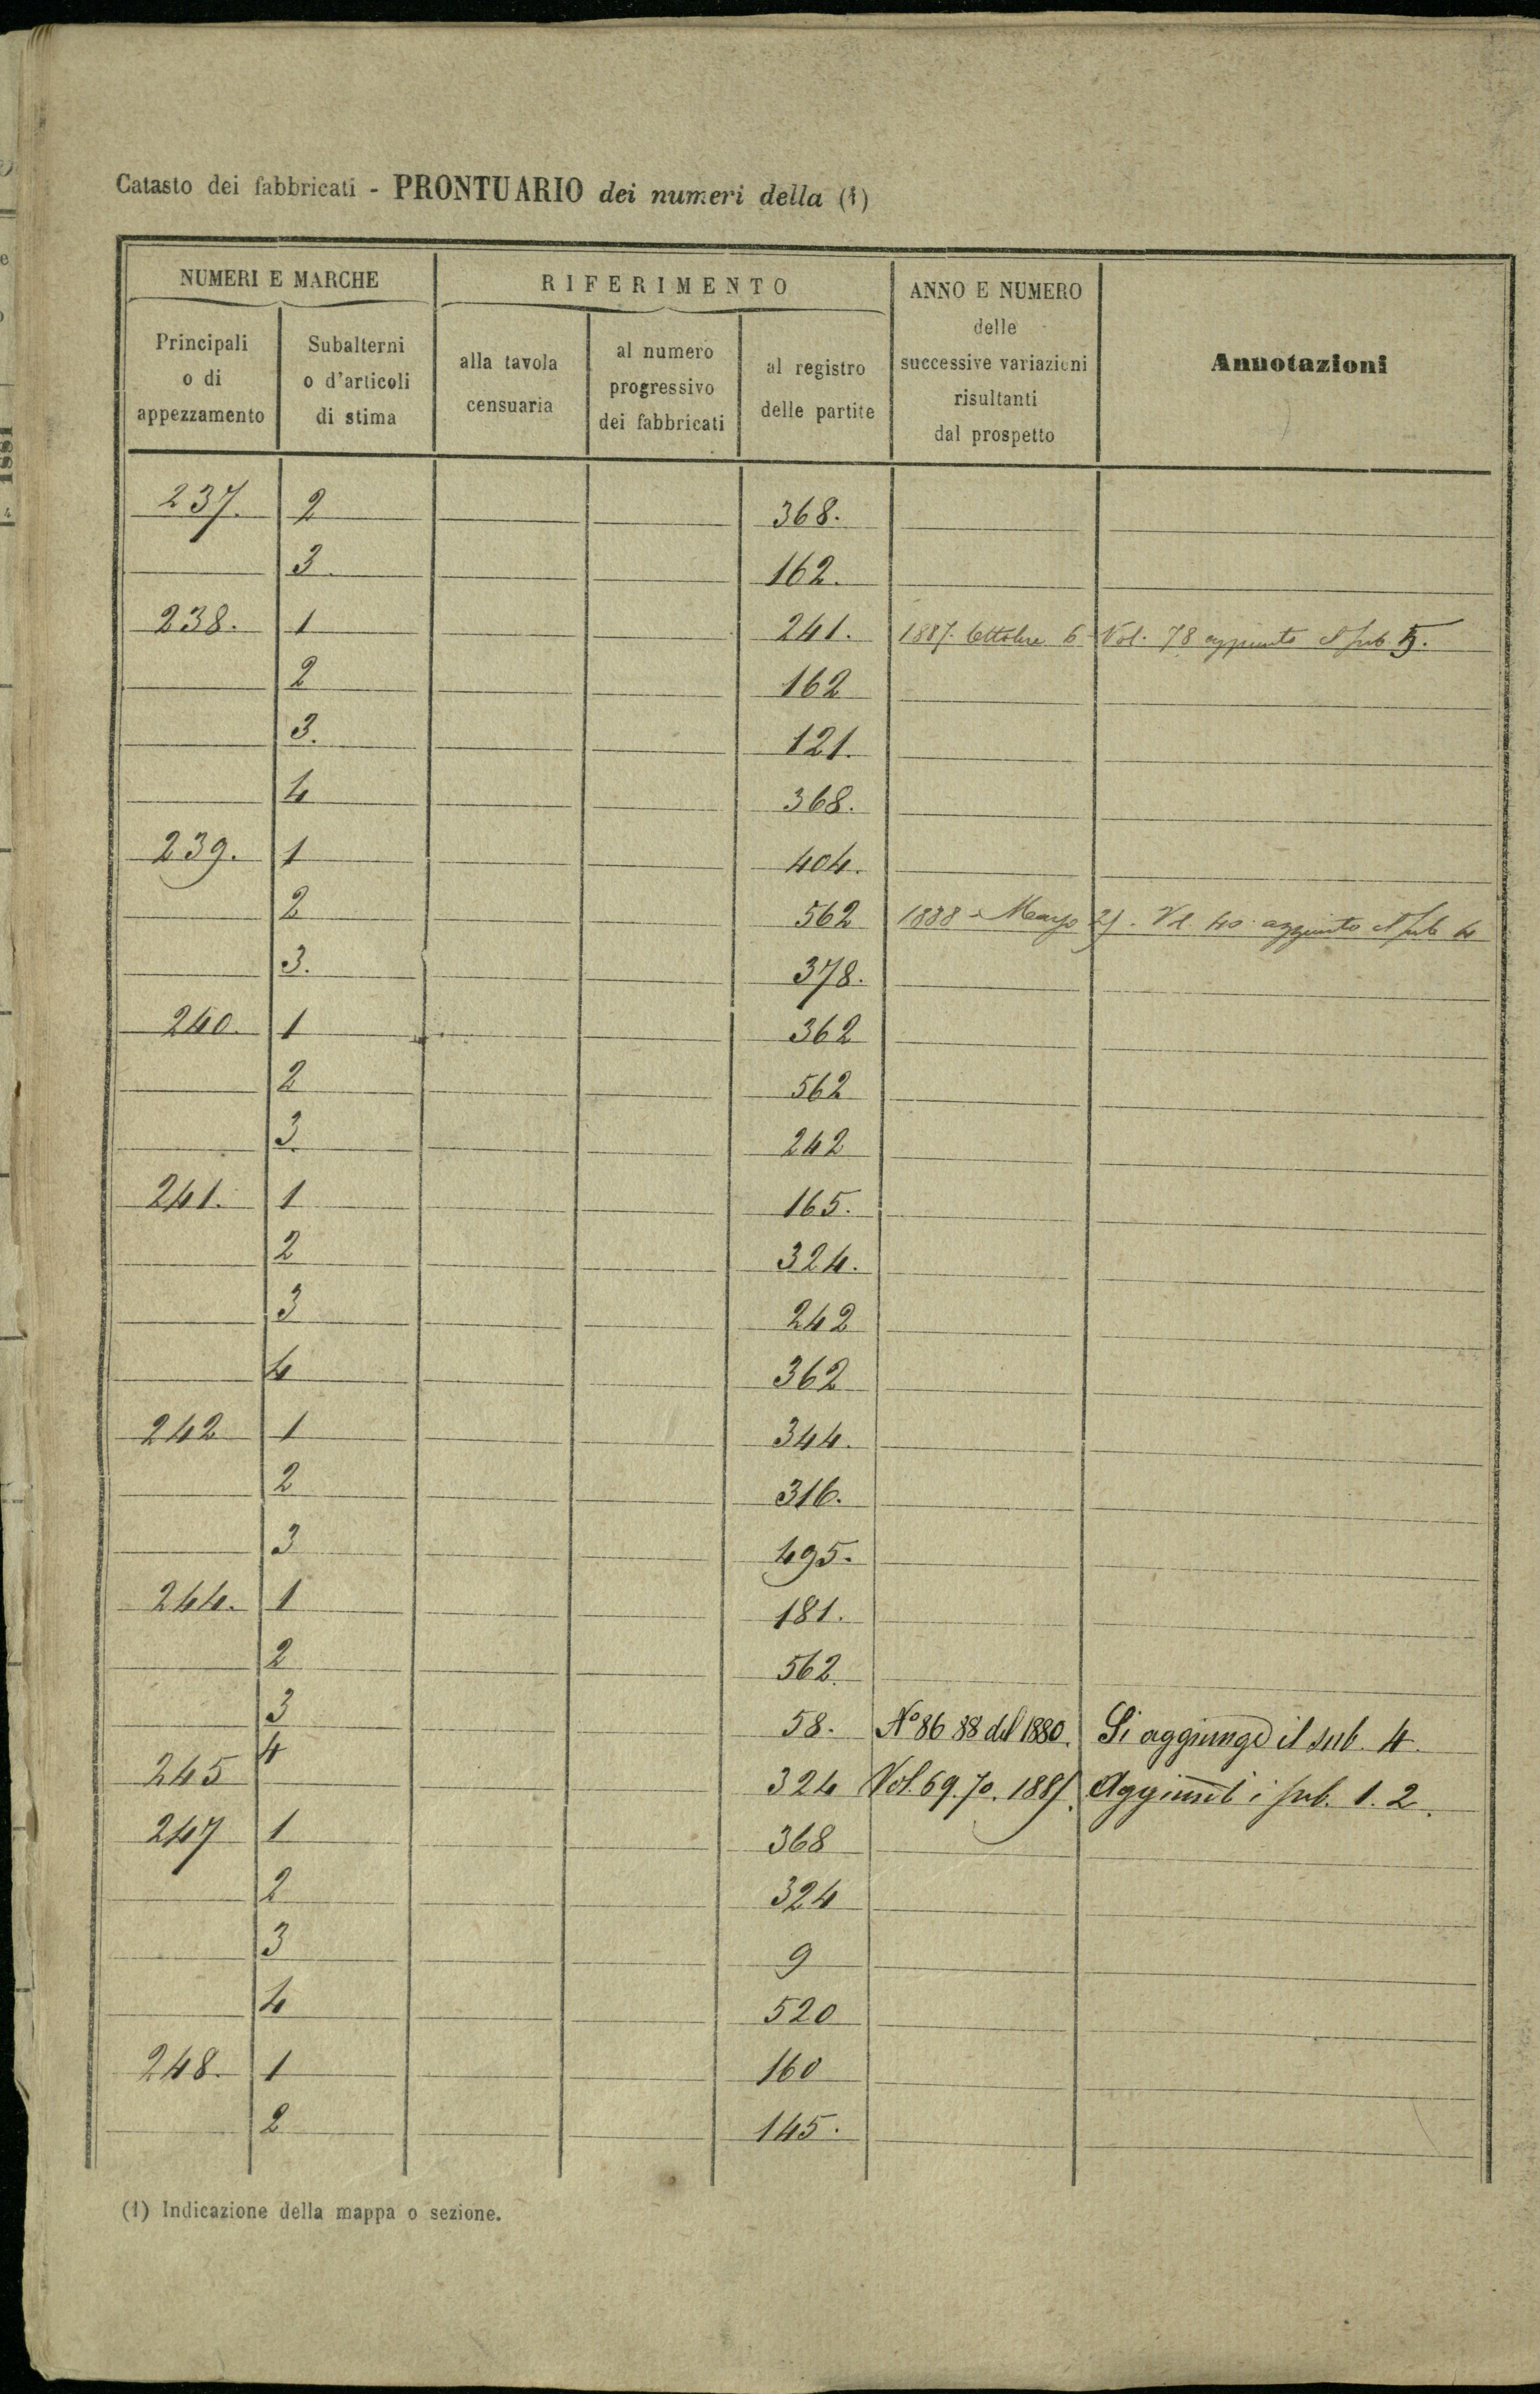 Catasto dei fabbricati - PRONTUARIO dei numeri della (1)
NUMERI E MARCHE
RIFERIMENTO
ANNO E NUMERO
delle
successive variazioni
risultanti
dal prospetto
Annotazioni
Principali
o di
appezzamento
Subalterni
o d'articoli
di stima
alla tavola
censuaria
al numero
progressivo
dei fabbricati
al registro
delle partite
237. 2 368.
3. 162.
238. 1 241. 1887. Ottobre 6 Vol. 78 aggiunto il sub. 5.
2 162
3. 121.
4 368.
239. 1 404.
2 562 1888 - Marzo 21. Vol. 40 aggiunto il sub 4
3. 378.
240. 1 362
2 562
3. 242
241. 1 165.
2 324.
3 242
4 362
242 1 344.
2 316.
3 495.
244. 1 181.
2 562.
3 58. N° 86 88 del 1880. Si aggiunge il sub. 4.
4
245 324 Vol. 69. 70. 1885. i sub. 1. 2.
247 1 368
2 324
3 9
4 520
248. 1 160
2 145.
(1) Indicazione della mappa o sezione.